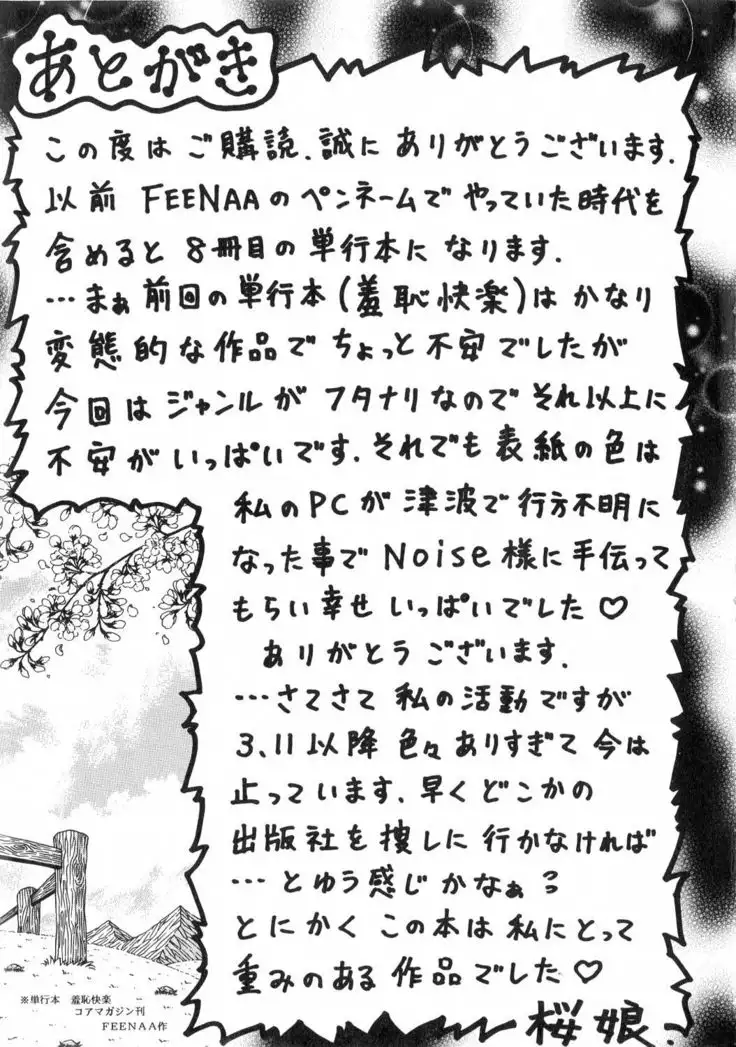 あとがき
この度は ご購読、誠に ありがとうございます.
以前 FEENAAの ペンネームで やっていた時代を
含めると 8冊目の 単行本に なります.
…まぁ 前回の 単行本(羞恥快楽)は かなり
変態的な 作品で ちょっと 不安でしたが
今回は ジャンルが フタナリなので それ以上に
不安が いっぱいです. それでも 表紙の色は
私のPCが 津波で 行方不明に
なった事で Noise様に 手伝って
もらい 幸せ いっぱいでした♡
ありがとう ございます.
…さてさて 私の活動ですが
3.11以降 色々ありすぎて 今は
止っています. 早く どこかの
出版社を 捜しに 行かなければ
…とゆう感じ かなぁ?
とにかく この本は 私にとって
重みのある 作品でした♡
桜娘.
※単行本 羞恥快楽
コアマガジン刊
FEENAA作